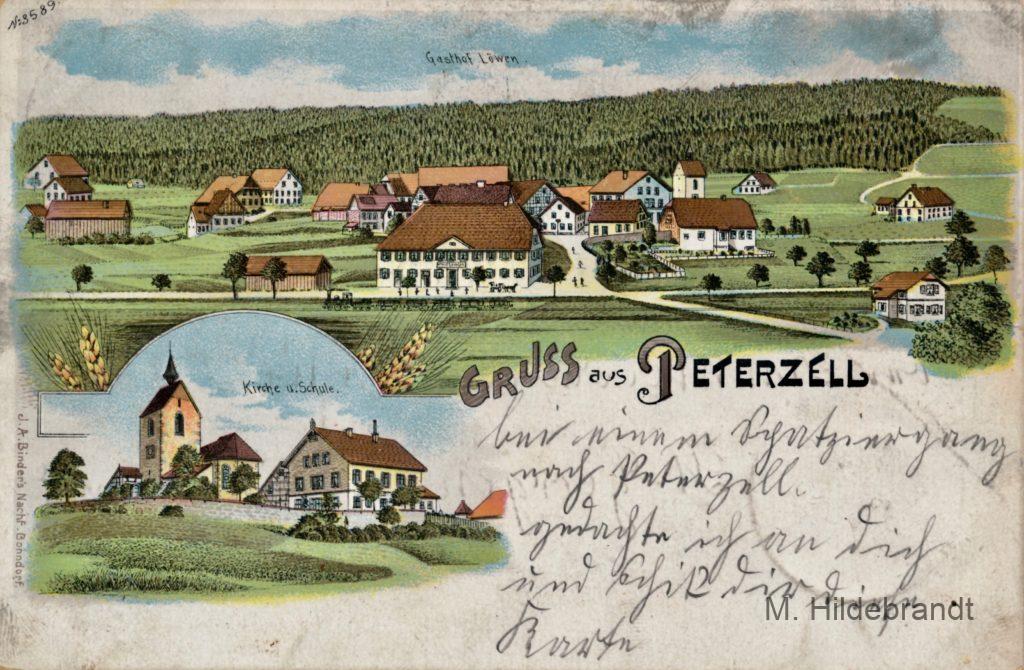 No 8589.
Gasthof Löwen.
GRUSS aus PETERZELL
Kirche u. Schule.
J. A. Binder's Nachf. Bonndorf.
bei einem Schatziergang
nach Peterzell.
gedachte ich an dich
und schik dir diese
Karte
M. Hildebrandt